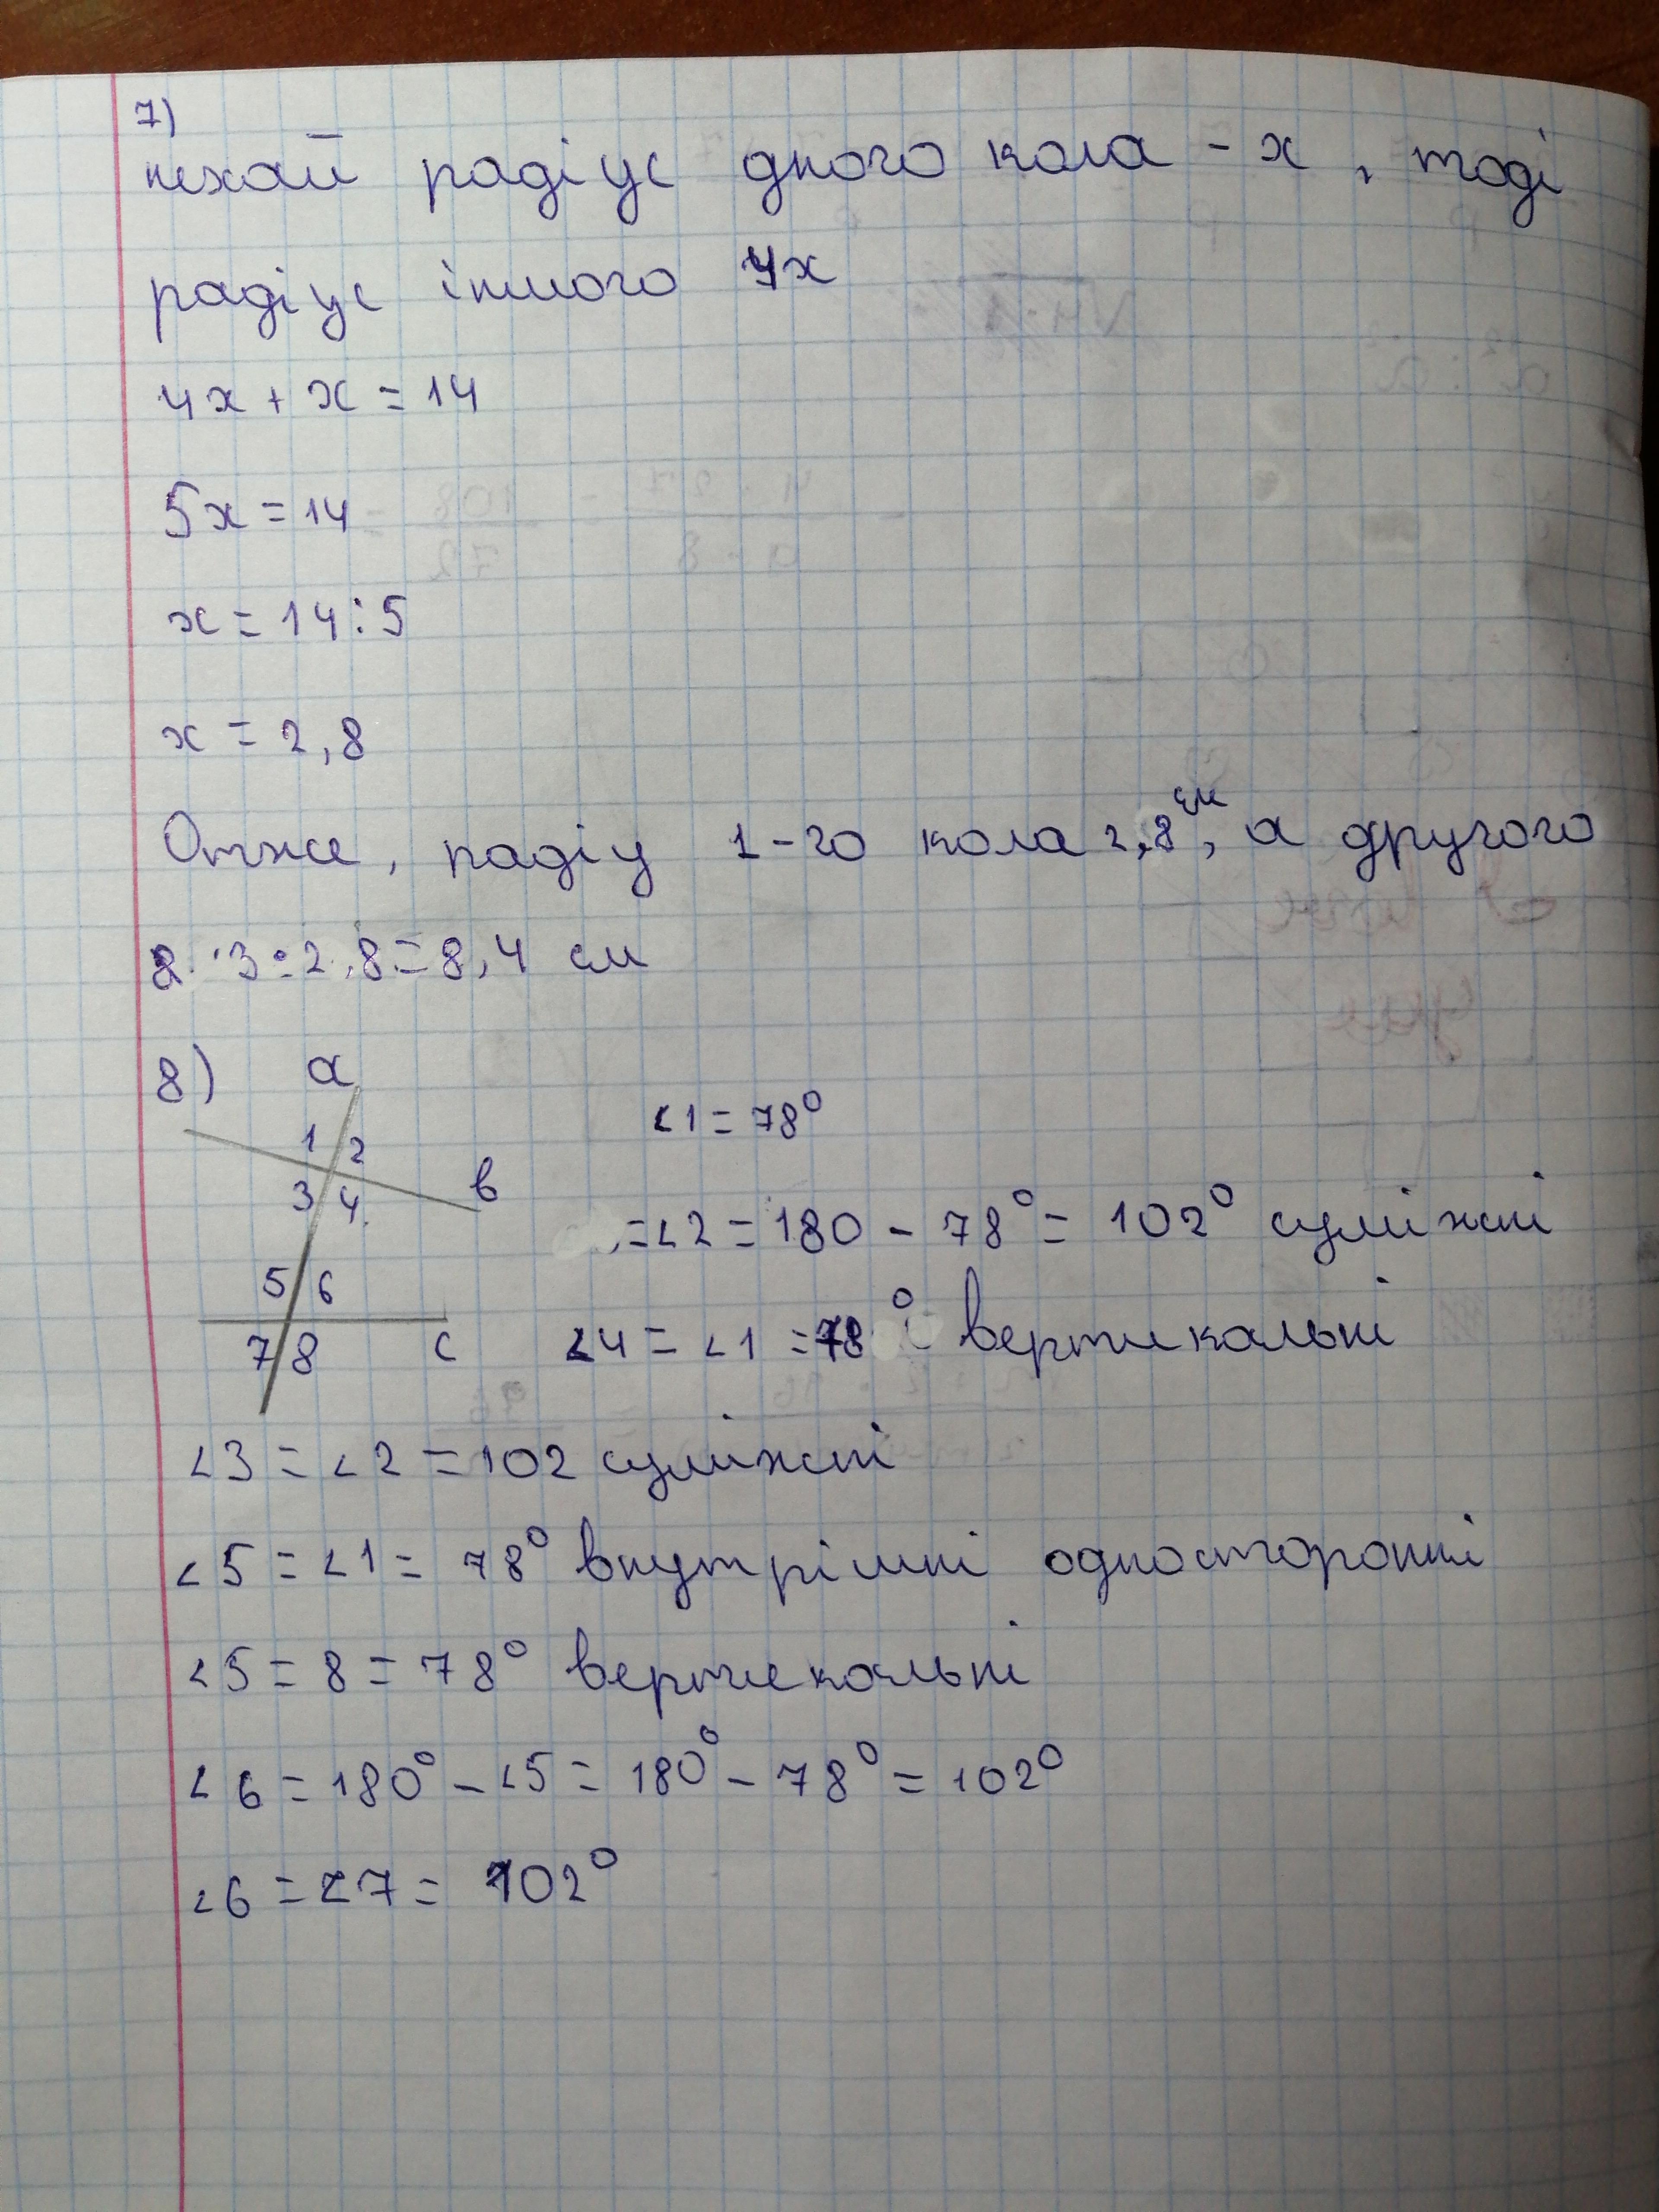 7)
нехай радіус дного кола - х, тоді
радіус іншого 4х
4х + х = 14
5х = 14
х = 14:5
х = 2,8
Отже, радіу 1-го кола 2,8 см, а другого
3 · 2,8 = 8,4 см
8) a
1 2
3 4
b
5 6
7 8
c
∠1 = 78°
= ∠2 = 180 - 78° = 102° суміжні
∠4 = ∠1 = 78° вертикальні
∠3 = ∠2 = 102 суміжні
∠5 = ∠1 = 78° внутрішні односторонні
∠5 = 8 = 78° вертикальні
∠6 = 180° - ∠5 = 180° - 78° = 102°
∠6 = ∠7 = 102°